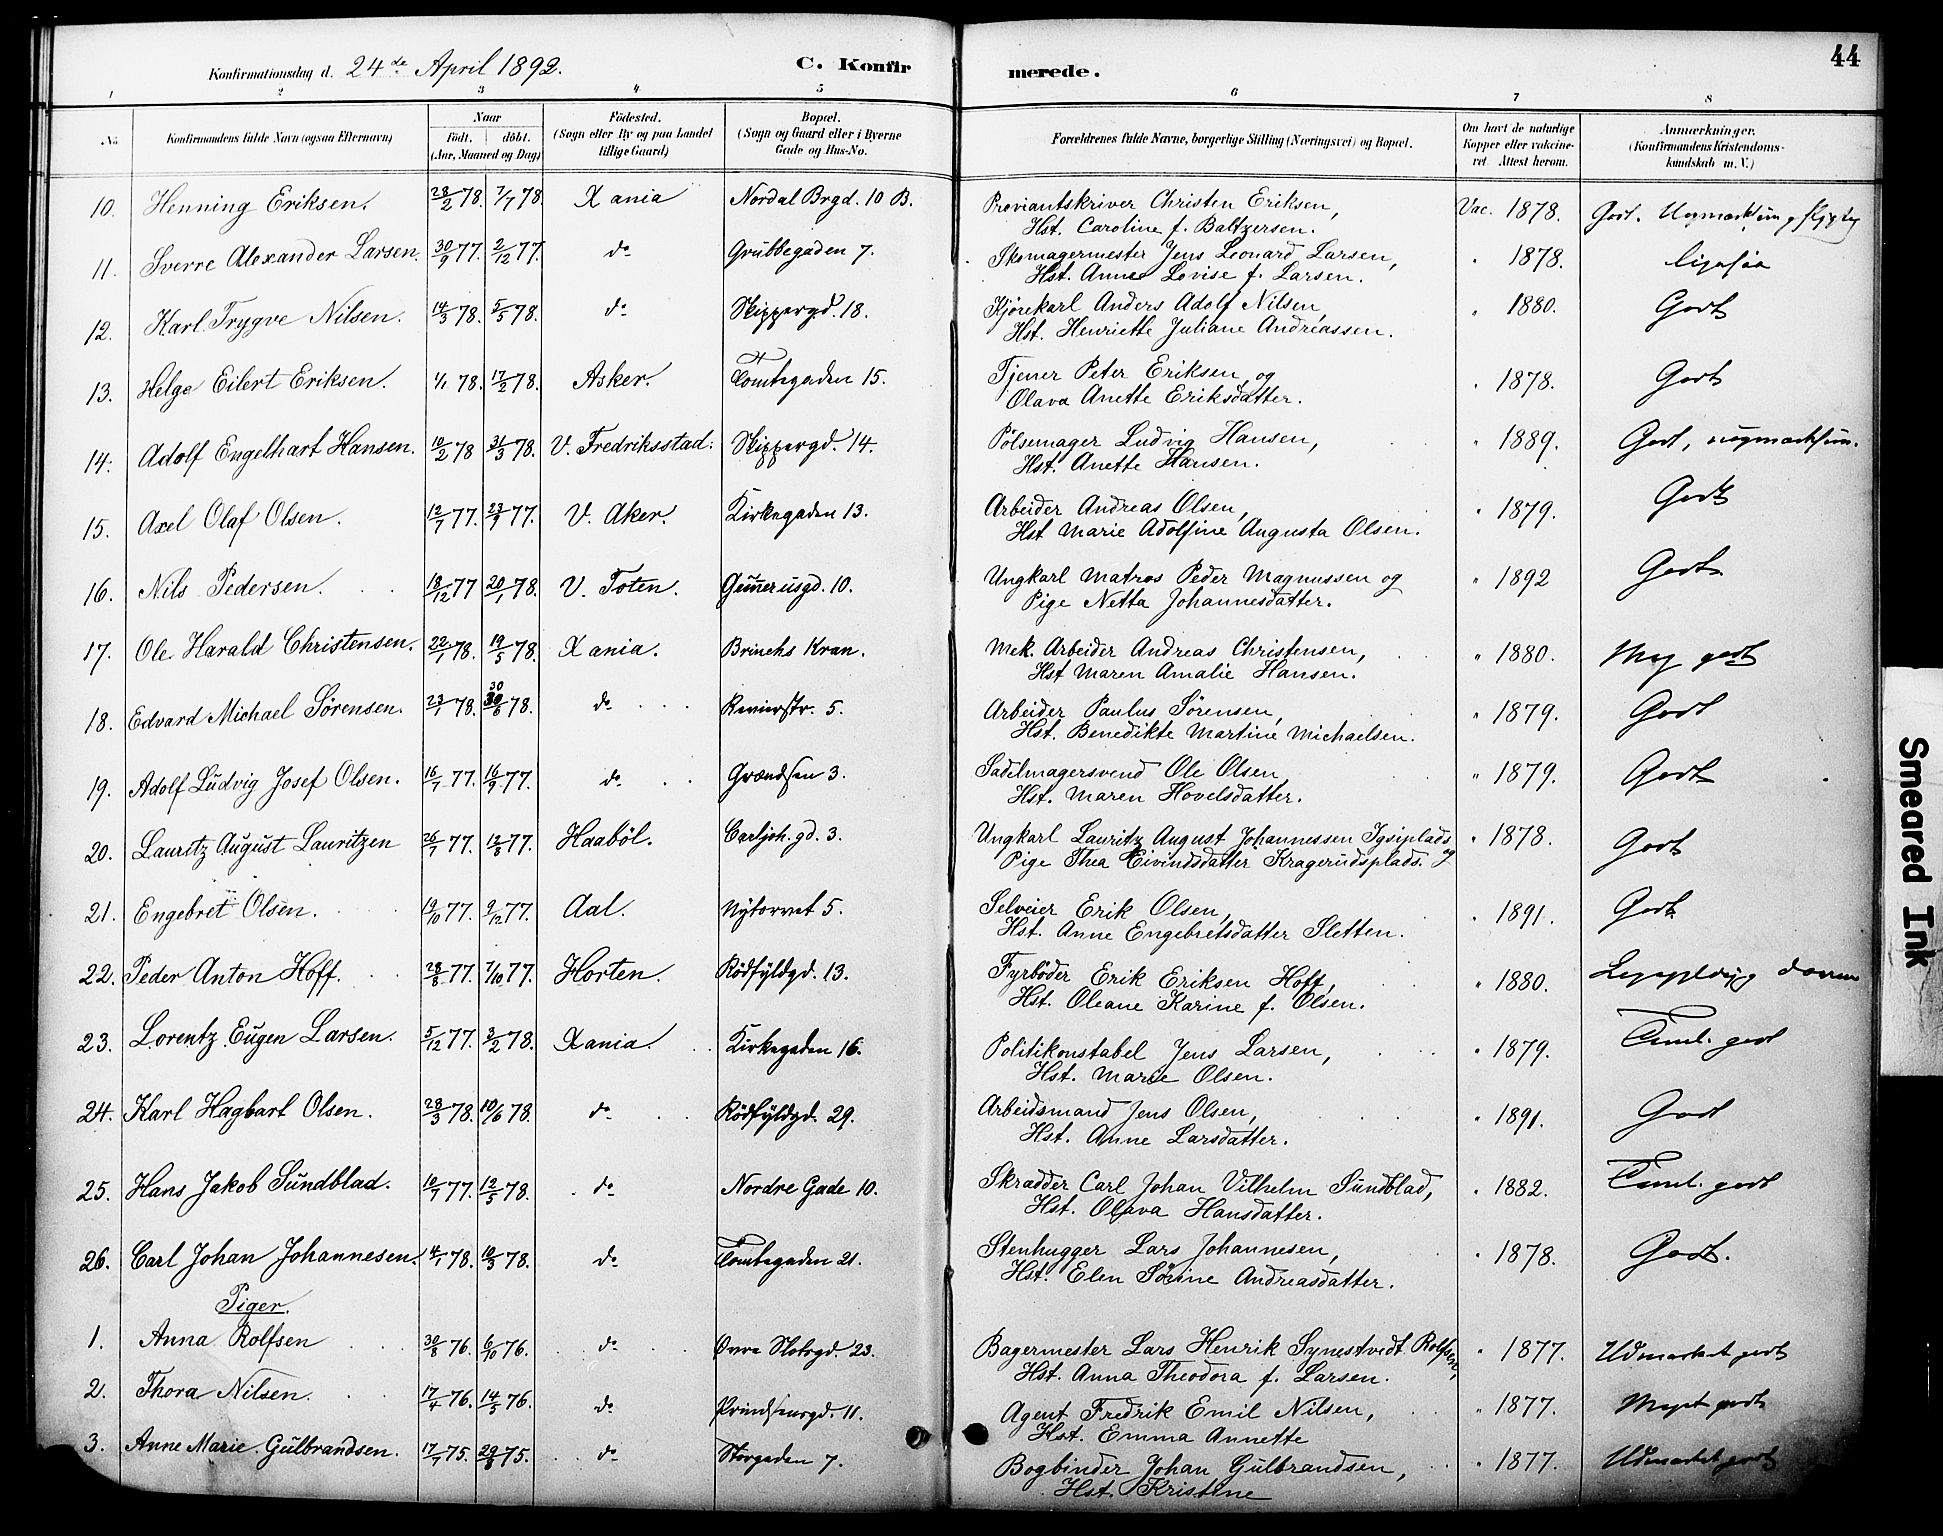 44
Konfirmationsdag d. 24de April 1892. C. Konfirmerede.
1 2 3 4 5 6 7 8
No. Konfirmandens fulde Navn (ogsaa Efternavn) Naar Født. døbt. (Aar, Maaned og Dag) Fødested. (Sogn eller By og paa Landet tillige Gaard) Bopæl. (Sogn og Gaard eller i Byerne Gade og Hus-No. Forældrenes fulde Navne, borgerlige Stilling (Næringsvei) og Bopæl. Om havt de naturlige Kopper eller vakcineret Attest herom. Anmærkninger. (Konfirmandens Kristendomskundskab m. V.)
10. Henning Eriksen. 28/2 78. 7/7 78. Xania Nordal Brgd. 10 B. Proviantskriver Christen Eriksen, Vac. 1878. Godt.
Hst. Caroline f. Baltzersen.
11. Sverre Alexander Larsen. 30/9 77. 2/12 77. do Grubbegaden 7. Skomagermester Jens Leonard Larsen, " 1878.
Hst. Anne Lovise f. Larsen.
12. Karl Trygve Nilsen. 14/3 78. 5/5 78. do Skippergd. 18. Kjørekarl Anders Adolf Nilsen, " 1880. Godt
Hst. Henriette Juliane Andreassen.
13. Helge Eilert Eriksen. 4/1 78. 17/2 78. Asker. Tomtegaden 15. Tjener Peter Eriksen og " 1878. Godt
Olava Anette Eriksdatter.
14. Adolf Engelhart Hansen. 10/2 78 31/3 78. V. Fredriksstad. Skippergd. 14. Pølsemager Ludvig Hansen, " 1889. Godt,
Hst. Anette Hansen.
15. Axel Olaf Olsen. 12/7 77. 23/9 77. V. Aker. Kirkegaden 13. Arbeider Andreas Olsen, " 1879. Godt
Hst Marie Adolfine Augusta Olsen.
16. Nils Pedersen. 18/12 77 20/1 78. V. Toten. Gunnerusgd. 10. Ungkarl Matros Peder Magnussen og " 1892 Godt
Pige Netta Johannesdatter.
17. Ole Harald Christensen. 22/1 78. 19/5 78. Xania. Brinchs Kran. Mek. Arbeider Andreas Christensen, " 1880. Meg godt
Hst Maren Amalie Hansen.
18. Edvard Michael Sørensen. 23/1 78. 30/6 78. do Revierstr. 5. Arbeider Paulus Sørensen, " 1879. Godt
Hst. Benedikte Martine Michaelsen.
19. Adolf Ludvig Josef Olsen. 16/7 77. 16/9 77. do Grændsen 3. Sadelmagersvend Ole Olsen, " 1879. Godt
Hst. Maren Hovelsdatter.
20. Lauritz August Lauritzen 26/7 77. 12/8 77. Haabøl. Carljoh. gd. 3. Ungkarl Lauritz August Johannessen og " 1878. Godt
Pige Thea Eivindsdatter Kragerudsplads.
21. Engebret Olsen. 19/10 77. 9/12 77. Aal. Nytorvet 5. Selveier Erik Olsen, " 1891. Godt
Hst. Anne Engebretsdatter Sletten.
22. Peder Anton Hoff. 28/8 77. 7/10 77. Horten. Rødfyldgd. 13. Fyrbøder Erik Eriksen Hoff, " 1880.
Hst. Oleane Karine f. Olsen.
23. Lorentz Eugen Larsen. 5/12 77. 3/2 78. Xania. Kirkegaden 16. Politikonstabel Jens Larsen, " 1879. Teml. godt
Hst. Marie Olsen.
24. Karl Hagbart Olsen. 28/3 78. 10/6 78. do Rødfyldgd. 29. Arbeidsmand Jens Olsen, " 1891. Godt
Hst. Anne Larsdatter.
25. Hans Jakob Sundblad. 10/7 77. 12/5 78. do Nordre Gade 10. Skrædder Carl Johan Vilhelm Sundblad, " 1882. Teml. godt
Hst. Olava Hansdatter.
26. Carl Johan Johannesen. 4/1 78. 10/3 78. do Tomtegaden 21. Stenhugger Lars Johannesen, " 1878. Godt.
Hst. Elen Sørine Andreasdatter.
Piger.
1. Anna Rolfsen 30/8 76. 6/10 76. do Øvre Slotsgd. 23. Bagermester Lars Henrik Synestvedt Rolfsen, " 1877. Udmærket godt
Hst. Anna Theodora f. Larsen.
2. Thora Nilsen. 17/4 76. 14/5 76. do Prindsensgd. 11. Agent Fredrik Emil Nilsen, " 1877. Meget godt
Hst. Emma Annette
3. Anne Marie Gulbrandsen. 17/7 75. 29/8 75. do Storgaden 7. Bogbinder Johan Gulbrandsen, " 1877. Udmærket godt
Hst. Kristine
Smeared Ink